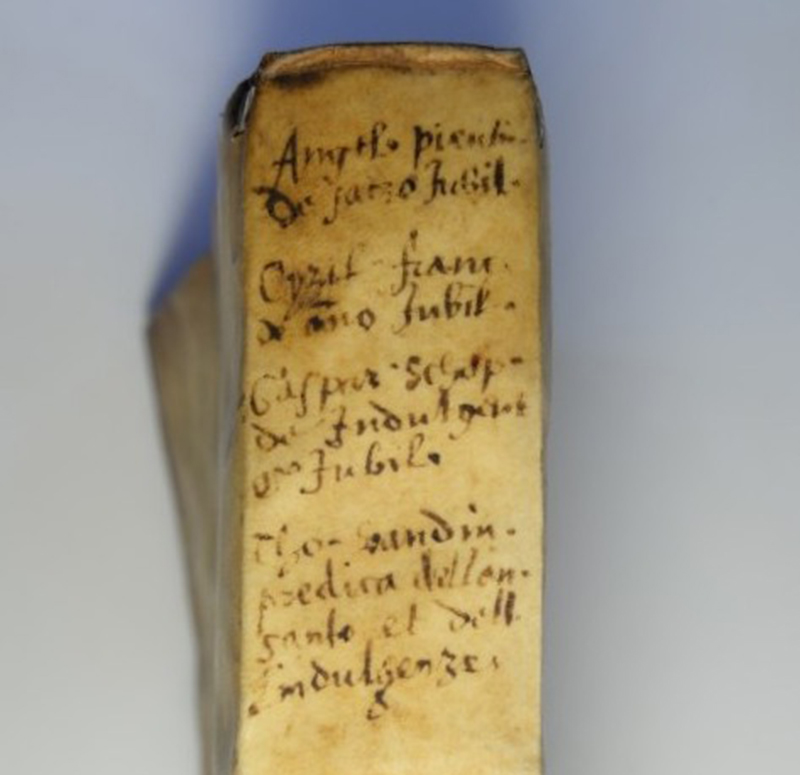 Angel. pientin.
De sacro Jubil.
Cyril franc.
de año Jubil.
Caspar Schop-
de Indulgent
et Jubil.
Tho. bandin.
predica dell'an.
santo et dell
Indulgenze.